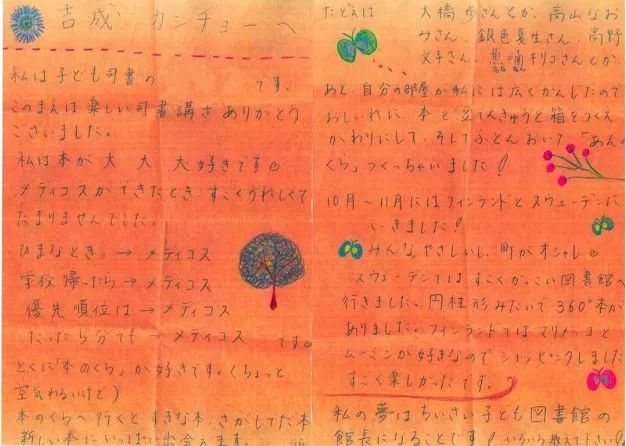 吉成 カンチョーへ
私は子ども司書の です。
このまえは楽しい司書講ざありがとう
ございました。
私は本が大大大好きです
メディコスができたとき、すごくうれしくて
たまりませんでした。
ひまなとき。→メディコス
学校帰ったら→メディコス
優先順位は→メディコス
たったら分でも→メディコス です
とくに「本のくら」が好きです。(ちょっと
空気わるいけど)
本のくらへ行くと、すきな本、さがしてた本
新しい本にいっぱい出会えます。
たとえは 大橋歩さんとか、高山なお
みさん、銀色夏生さん、高野
文子さん、魚喃キリコさんとか。
あと、自分の部屋が私には広くかんじたので、
おしいれに本と立てんきゅうと箱をつくえ
かわりにして、そしてふとんおいて「あんの
くら」つくっちゃいました!
10月~11月にはフィンランドとスウェーデンに
いきました!
みんなやさしいし、町がオシャレ
スウェーデンではすごくかっこい図書館へ
行きました。円柱形みたいで360°本が
ありました。フィンランドではマリメッコと
ムーミンが好きなのでショッピングしました
すごく楽しかったです。
私の夢はちいさい子ども図書館の
館長になることです!いろいろ教えて下さい!